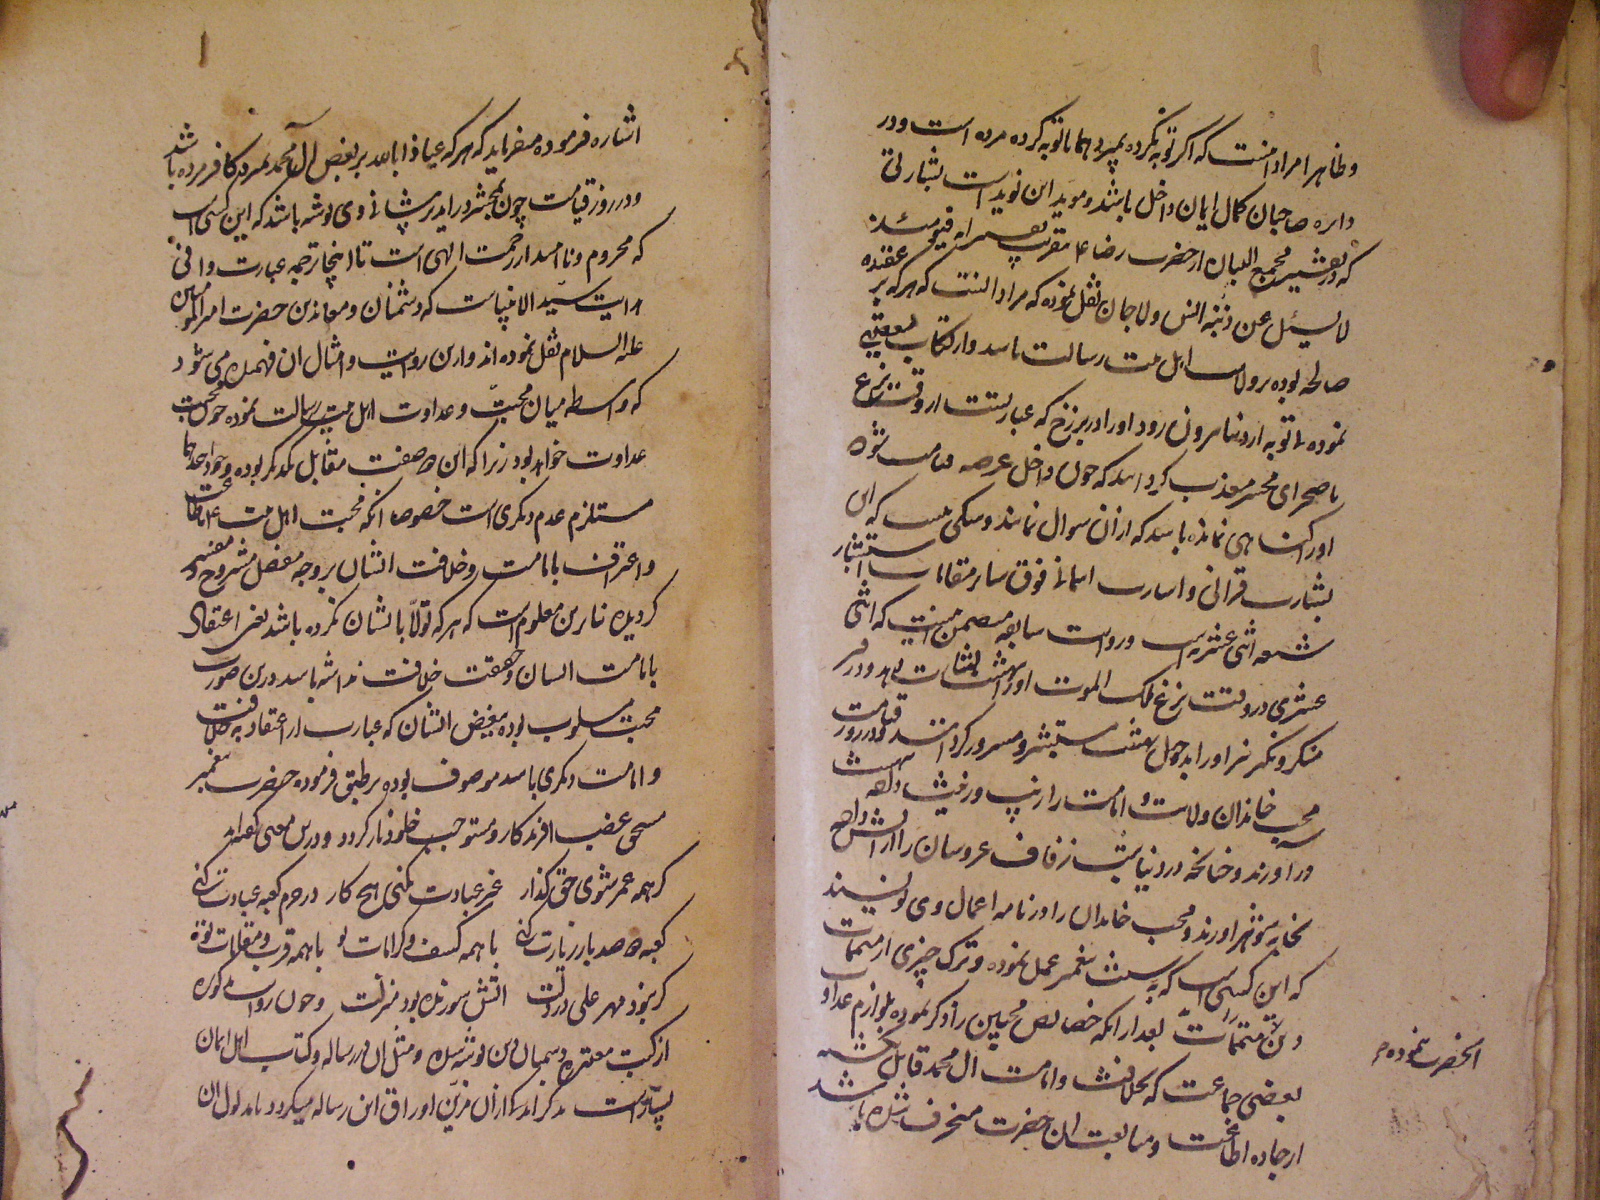 وظاهرا مراد انست که اگر توبه نکرده بمیرد همانا توبه کرده مرده است ودر
دایره صاحبان کمال ایمان داخل باشد وموید این نوید است بشارتی
که در تفسیر مجمع البیان از حضرت رضا ع بتقریب تفسیر ایه فیومئذ
لا یسئل عن ذنبه انس ولا جان نقل نموده که مراد انست که هرکه بر عقیده
صالحه بوده بر ولایت اهل بیت رسالت باشد وارتکاب معصیتی
نموده بی توبه از دنیا بیرون رود اورا در برزخ که عبارتست از وقت نزع
تا صحرای محشر معذب گردانند که چون داخل عرصه قیامت شود
اورا گناهی نمانده باشد که از آن سوال نمایند وشکی نیست که این
بشارت قرآنی واشارت آسمانی فوق سایر مقامات استبشار
شیعه اثنی عشریه است وروایت سابقه متضمن اینست که اثنی
عشری در وقت نزع ملک الموت اورا ببهشت بشارت دهد ودر قبر
منکر ونکیر نیز اورا بدخول بهشت مستبشر ومسرور گردانند ودر روز قیامت
محب خاندان ولایت و امامت را بزیب وزینت داخل بهشت
در آورند وچنانچه در دنیا شب زفاف عروسان را آرایش داده
بخانه شوهر اورند ومحب خاندان را در نامه اعمال وی نویسند
که این کسی است که به سنت پیغمبر عمل نموده وترک چیزی از مهمات
دین متممات بعد از انکه خصایص محبین را ذکر نموده بلوازم عداوت
بعضی جماعت که بخلافت وامامت ال محمد قابل نگشته
از جاده اطاعت ومتابعت ان حضرت منحرف شده باشد
انحضرت نموده
اشاره فرموده میفرماید که هرکه عیاذا بالله بر بغض آل محمد بمیرد کافر مرده باشد
ودر روز قیامت چون بمحشر در اید بر پیشانی وی نوشته باشد که این کسی است
که محروم ونا امید از رحمت الهی است تا اینجا ترجمه عبارت وافی
هدایت سید الانبیاست که دشمنان ومعاندین حضرت امیر المؤمنین
علیه السلام نقل نموده اند وازین روایت وامثال ان فهمیده می شود
که واسطه میان محبت وعداوت اهل بیت رسالت نبوده چون محبت
عداوت خواهد بود زیرا که این دو صفت مقابل یکدیگر بوده وجود احدهما
مستلزم عدم دیگری است خصوصا انکه محبت اهل بیت
واعتراف بامامت وخلافت ایشان بر وجه مفصل مشروح ومفسر
گردیده بنا برین معلوم است که هرکه تولا بایشان نکرده باشد یعنی اعتقاد
بامامت ایشان وحقیقت خلافت نداشته باشد درین صورت
محبت مسلوب بوده ببغض ایشان که عبارت از اعتقاد بخلافت
وامامت دیگری باشد موصوف بوده بر طبق فرموده حضرت پیغمبر
مستحق غضب افریدکار ومستوجب خلود نار گردد ودرین معنی گفته اند
گر همه عمر شوی حق گذار غیر عبادت نکنی هیچ کار در حرم کعبه عبادت کنی
کعبه دو صد بار زیارت کنی با همه کشف وکرامات تو با همه قرب ومقامات تو
گر نبود مهر علی در دلت اتش سوزنده بود منزلت وچون روایت مذکوره
از کتب معتبره دشمنان دین نوشته شده ومثل ان در رساله وکتاب اهل ایمان
بسیار است بذکر اندکی از آن مزین اوراق این رساله میگردد باید دلول ان